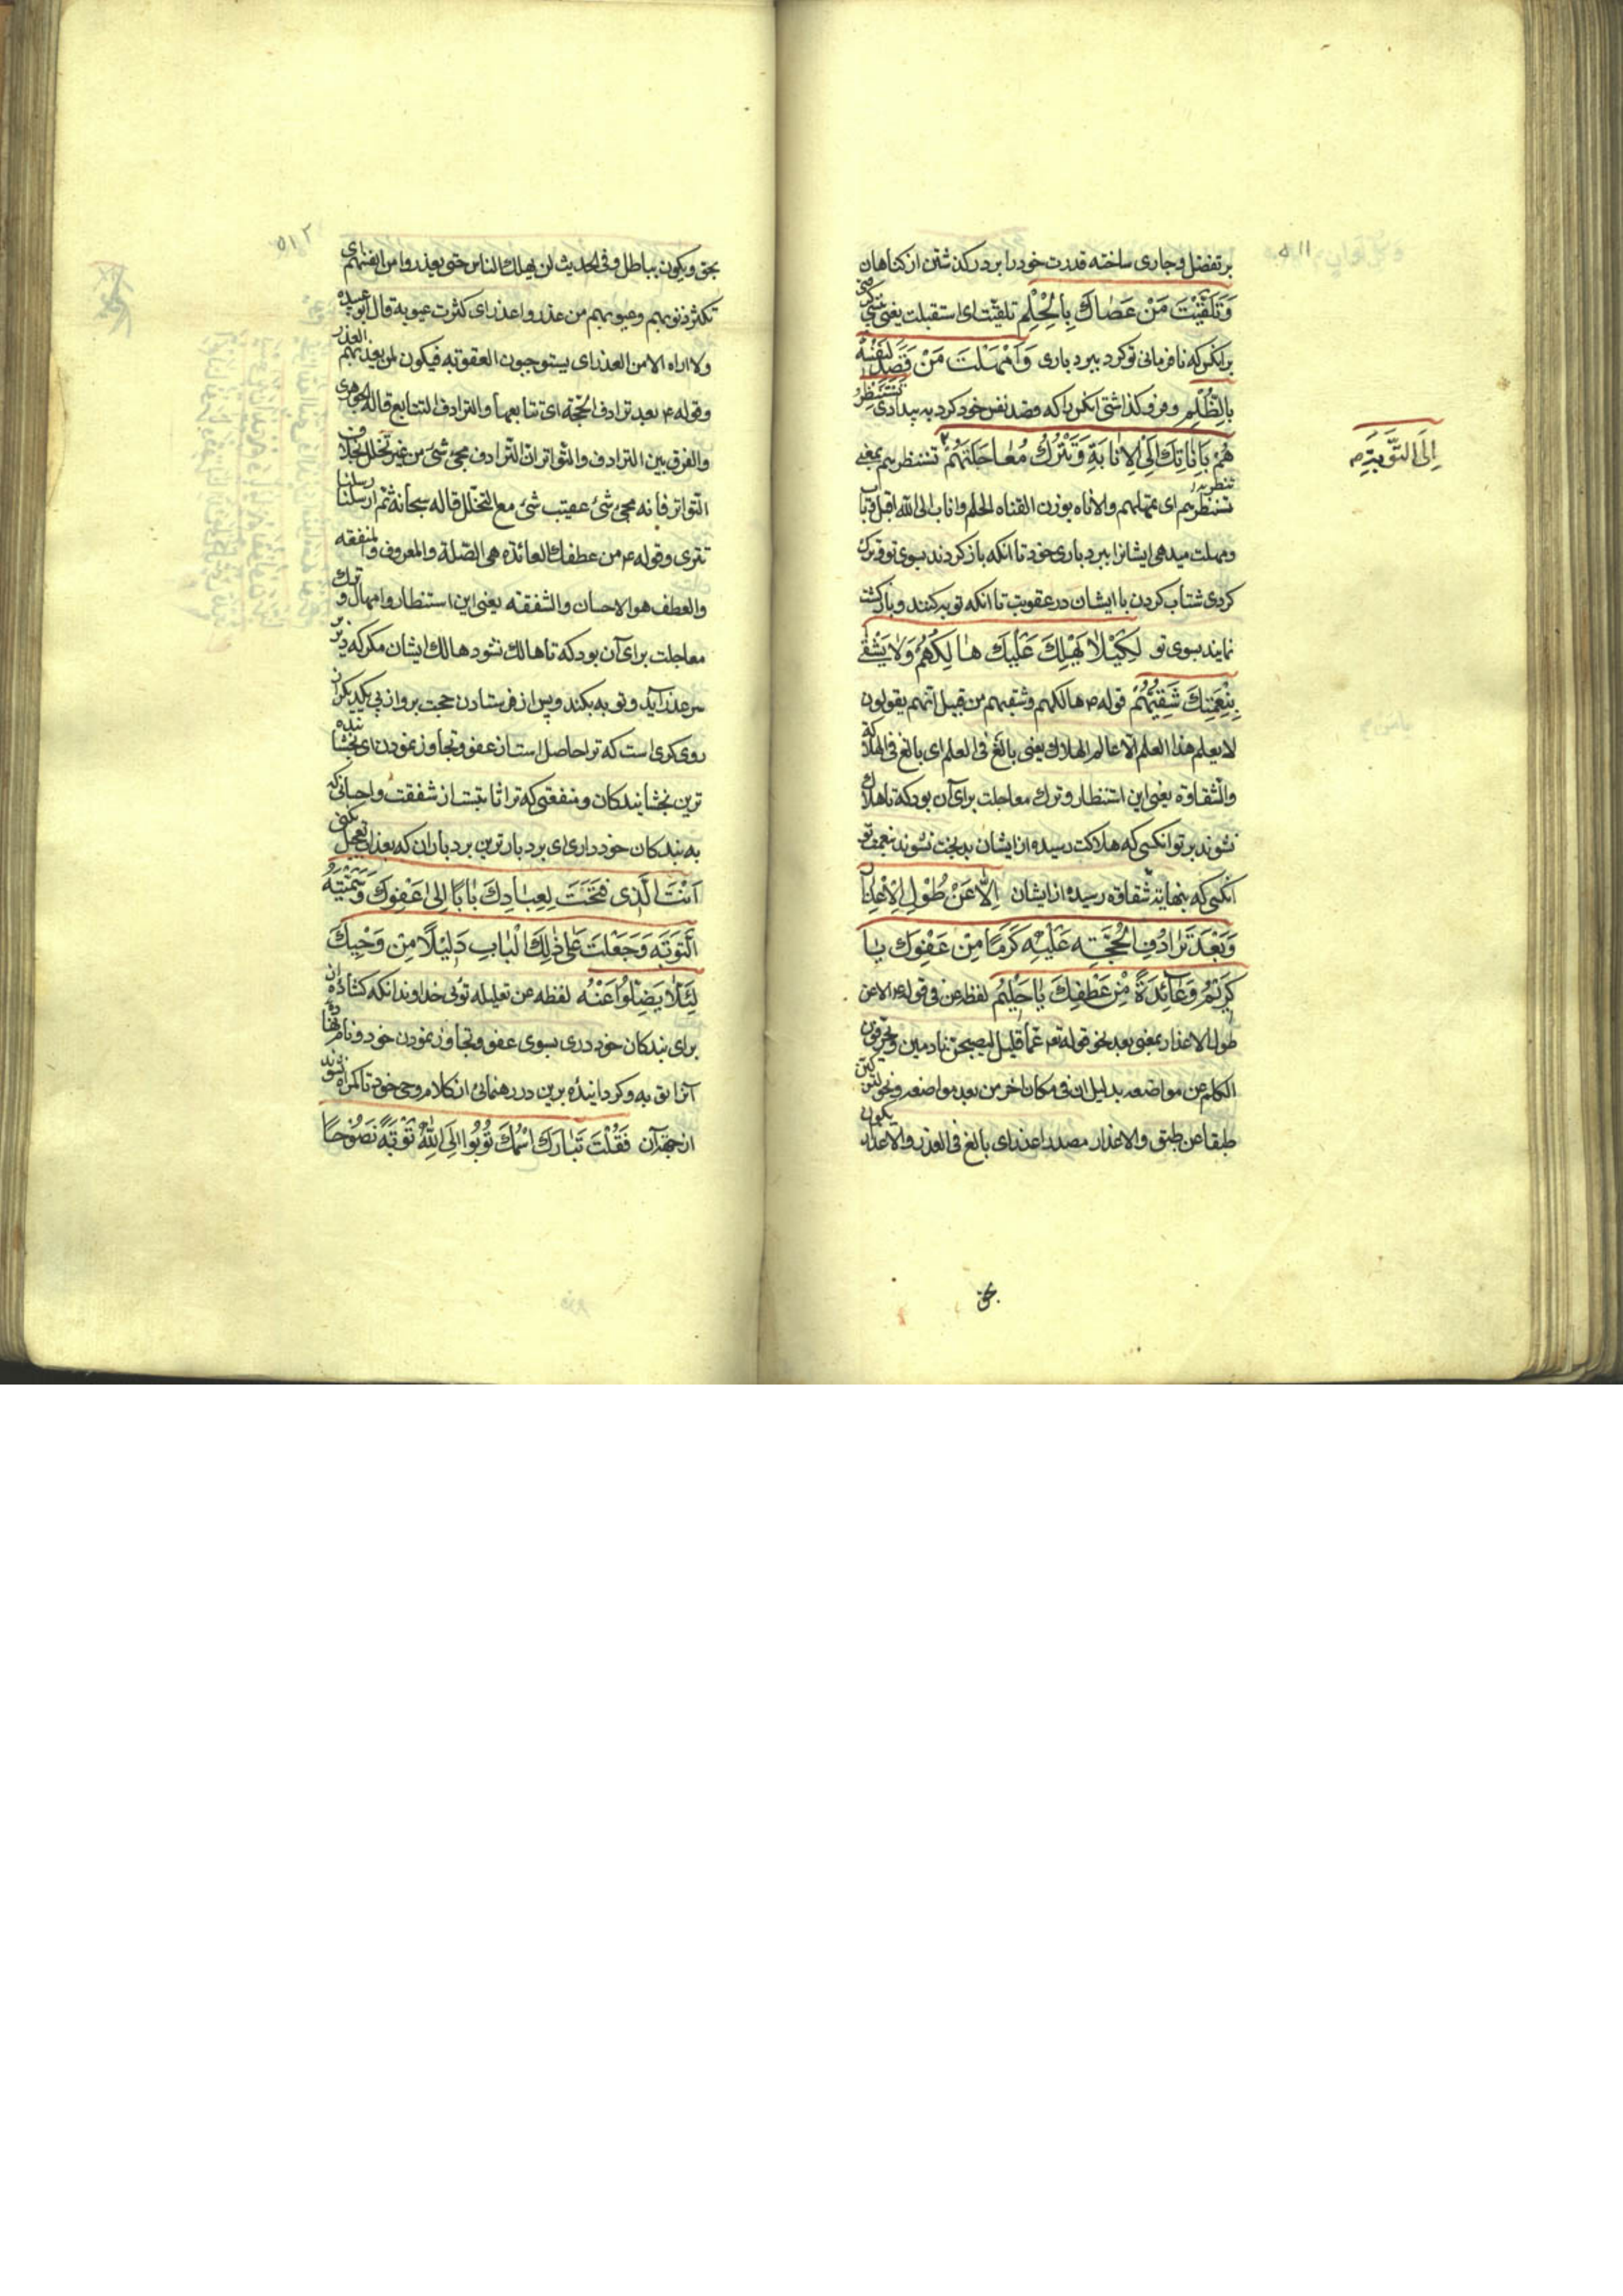 ۵۱۱
بر تفضل و جاری ساخته قدرت خود را بر درکذشتن از کناهان
وَتَلَقَّيْتَ مَنْ عَصَاكَ بِالْحِلْمِ تلقیت ای استقبلت یعنی
برانکس که نافرمانی تو کرد ببردباری وَاَمْهَلْتَ مَنْ قَصَدَ لِنَفْسِهِ
بِالظُّلْمِ و فرو کذاشتی انکس را که قصد نفس خود کرد به بیدادی تَسْتَنْظِرُ
هُمْ بِاَنَاتِكَ اِلَى الْاِنَابَةِ وَتَتْرُكُ مُعَاجَلَتَهُمْ تستنظرهم بمعنی
اِلَى التَّوْبَةِ م
تنتظرهم ای تمهلهم والاناه بوزن القناه الحلم واناب الی الله اقبل وتاب
ومهلت میدهی ایشانرا ببردباری خود تا انکه باز کردند بسوی تو وترک
کردی شتاب کردن با ایشان در عقوبت تا انکه توبه کنند وبازکشت
نمایند بسوی تو لِكَيْلَا يَهْلِكَ عَلَيْكَ هَالِكُهُمْ وَلَا يَشْقَى
بِنِعْمَتِكَ شَقِيُّهُمْ قوله ع هالکهم وشقیهم من قبیل انهم یقولون
لا یعلم هذا العلم الا عالم الهلاك یعنی بالغ فی العلم ای بالغ فی الهلاکة
والشقاوة یعنی این استنظار وترك معاجلت برای آن بود که تا هلاك
نشوند بر تو انکسی که هلاکت رسیده از ایشان بدبخت نشوند بنعمت تو
انکسی که بنهایة شقاوة رسیده از ایشان اِلَّا عَنْ طُولِ الْاِعْذَارِ
وَبَعْدَ تَرَادُفِ الْحُجَّةِ عَلَيْهِ كَرَمًا مِنْ عَفْوِكَ يَا
كَرِيمُ وَعَائِدَةً مِنْ عَطْفِكَ يَا حَلِيمُ لفظه عن فی قوله ع الا عن
طول الاعذار بمعنی بعد نحو قوله تع عما قلیل لیصبحن نادمین ویحرفون
الکلم عن مواضعه بدلیل ان فی مکان اخر من بعد مواضعه ونحو لترکبن
طبقا عن طبق والاعذار مصدر اعذر ای بالغ فی العذر والاعذار یکون
بحق
۵۱۲
بحق ویکون بباطل وفی الحدیث لن یهلك الناس حتی یعذروا من انفسهم ای
تکثر ذنوبهم وعیوبهم من عذر واعذر ای کثرت عیوبه قال ابو عبیده
ولا اراه الا من العذر ای یستوجبون العقوبه فیکون لمن یعذبهم العذر
وقوله ع بعد ترادف الحجة ای تتابعها والترادف التتابع قاله الجوهری
والفرق بین الترادف والتواتر ان الترادف مجیء شیء من غیر تخلل بخلاف
التواتر فانه مجیء شیء عقیب شیء مع التخلل قاله سبحانه ثم ارسلنا رسلنا
تتری وقوله ع من عطفك العائدة هی الصلة والمعروف والمنفعه
والعطف هو الاحسان والشفقه یعنی این استنظار وامهال وترك
معاجلت برای آن بود که تا هالك نشود هالك ایشان مکر که دیر
سر عذر آید وتوبه بکند وپس از فرستادن حجت بر او از پی یکدیکر از
روی کرمی است که ترا حاصل است از عفو وتجاوز نمودن ای بخشاینده
ترین بخشایندکان ومنفعتی که ترا ثابتست از شفقت واحسانی که
به بندکان خود داری ای بردبارترین بردباران که بعذاب تعجیل نکنی
اَنْتَ الَّذِى فَتَحْتَ لِعِبَادِكَ بَابًا اِلَى عَفْوِكَ وَسَمَّيْتَهُ
التَّوْبَةَ وَجَعَلْتَ عَلَى ذٰلِكَ الْبَابِ دَلِيلًا مِنْ وَحْيِكَ
لِئَلَّا يَضِلُّوا عَنْهُ لفظه عن تعلیله توئی خداوندانکه کشاده ان
برای بندکان خود دری بسوی عفو وتجاوز نمودن خود ونام نهاده
آنرا توبه وکردانیده برین در رهنمائی از کلام وحی خود تا کمراه نشوند
از جهة آن فَقُلْتَ تَبَارَكَ اسْمُكَ تُوبُوا اِلَى اللّٰهِ تَوْبَةً نَصُوحًا